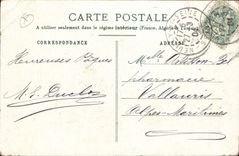 CARTE POSTALE
A utiliser seulement dans le régime intérieur (France, Algérie et Tunisie)
CORRESPONDANCE
ADRESSE
Heureuses Pâques
Mlle
pharmacie
Vallauris
Alpes-Maritimes